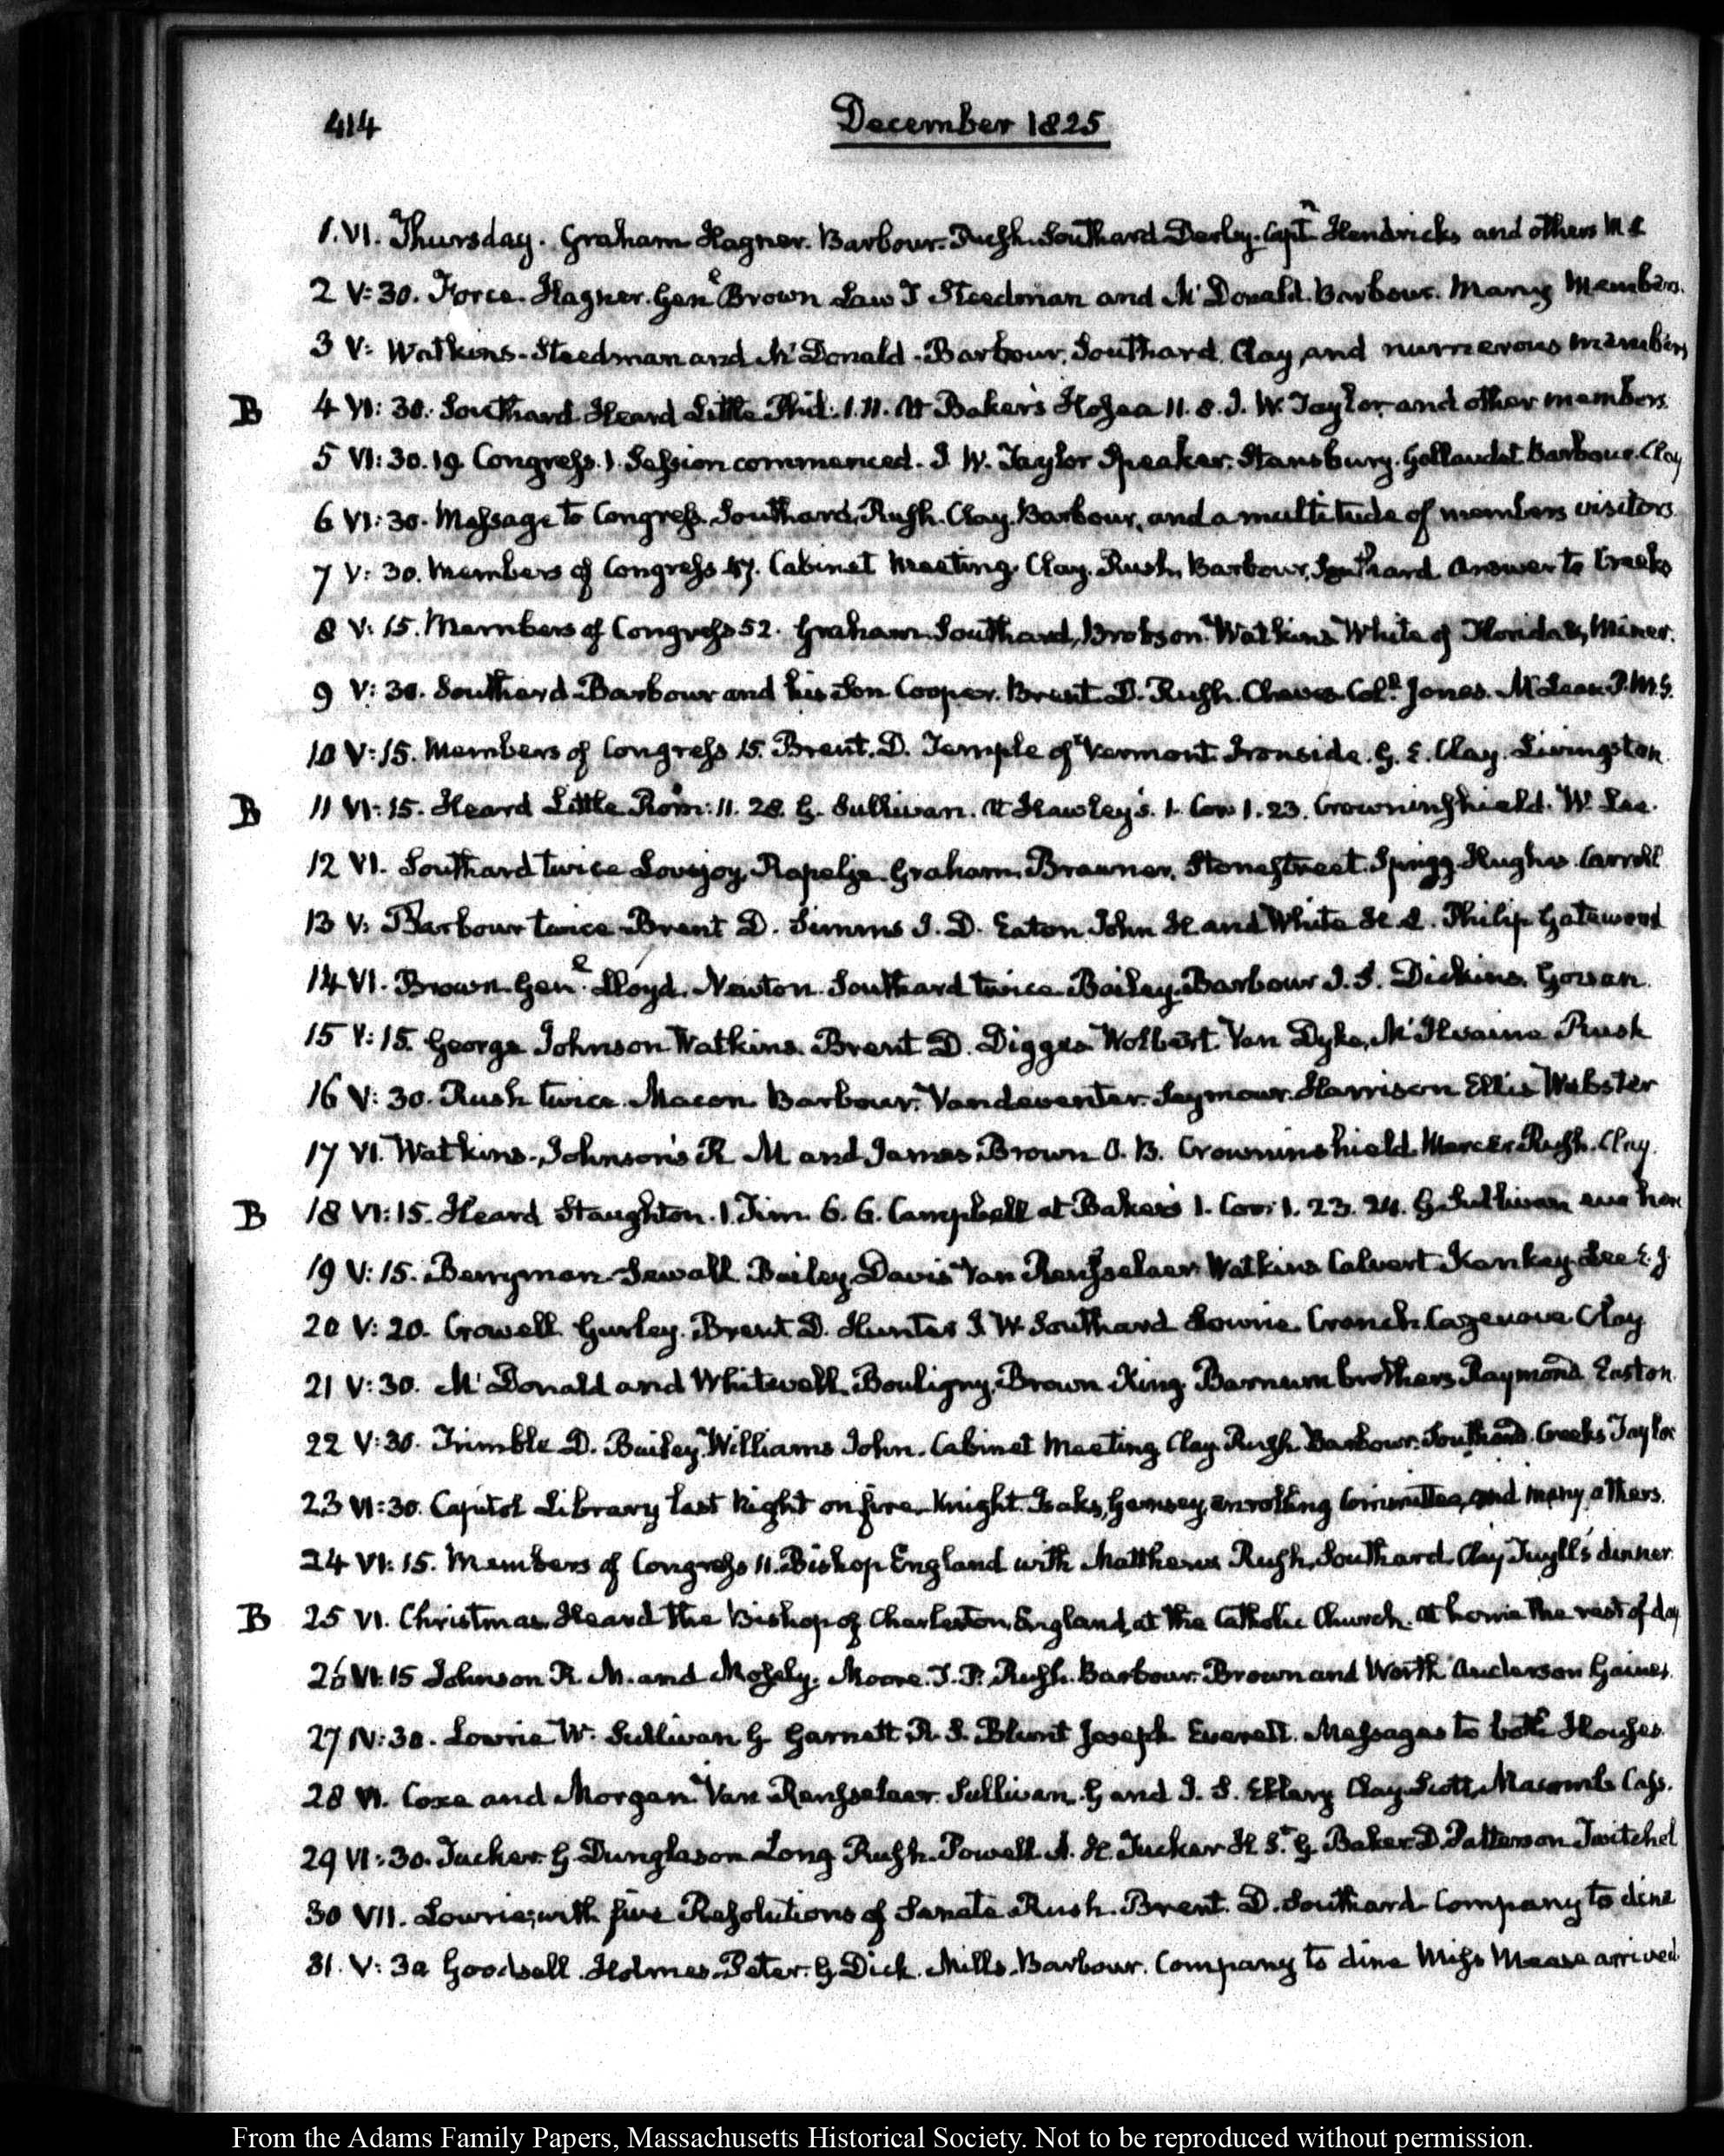 414
December 1825
1. VI. Thursday. Graham Hagner. Barbour. Rush. Southard Derby. Capt.n Hendricks and others M C
2 V: 30. Force. Hagner. Gen.l Brown Law T Steedman and McDonald. Barbour. Many Members.
3 V: Watkins. Steedman and McDonald. Barbour, Southard, Clay, and numerous members
B 4 VI: 30. Southard Heard Little Phil. 1. 11. At Baker's Hosea 11. 8. J. W. Taylor and other members.
5 VI: 30. 19 Congress. 1. Session commenced. J. W. Taylor Speaker. Stansbury. Gallaudet Barbour. Clay
6 VI: 30. Message to Congress. Southard, Rush. Clay. Barbour, and a multitude of members visitors
7 V: 30. Members of Congress 47. Cabinet Meeting. Clay. Rush, Barbour, Southard Answer to Creeks
8 V: 15. Members of Congress 52. Graham. Southard, Brobson. Watkins. White of Florida, Miner.
9 V: 30. Southard. Barbour and his Son Cooper. Brent. D. Rush. Cheves Col.l Jones. McLean P.M.G.
10 V: 15. Members of Congress 15. Brent. D. Temple of Vermont. Ironside. G. E. Clay. Livingston
B 11 VI: 15. Heard Little Rom: 11. 28. G. Sullivan. At Hawley's. 1. Cor 1. 23. Crowninshield. W. Lee.
12 VI. Southard twice Lovejoy, Rapelje. Graham, Brawner, Stonestreet. Sprigg Hughes Carroll
13 V: Barbour twice Brent D. Simms J. D. Eaton John H and White H. L. Philip Gatewood
14 VI. Brown Gen.l Lloyd. Newton. Southard twice Bailey. Barbour J. S. Dickins. Govan
15 V: 15. George Johnson Watkins. Brent D. Digges Wolbert. Van Dyke, McIlvaine Rush
16 V: 30. Rush twice. Macon. Barbour. Vandeventer. Seymour. Harrison Ellis Webster
17 VI. Watkins. Johnson's R M and James Brown O. B. Crowninshield Mercer Rush. Clay.
B 18 VI: 15. Heard Staughton. 1. Tim. 6. 6. Campbell at Baker's 1. Cor: 1. 23. 24. G Sullivan
19 V: 15. Berryman. Sewall Bailey. Davis Van Rensselaer. Watkins Calvert Kankey. Lee E. J
20 V: 20. Crowell Gurley. Brent. D. Hunter J. W. Southard Lowrie. Cranch. Cazenove Clay
21 V: 30. McDonald and Whitwell. Bouligny. Brown King Barnum brothers Raymond. Easton.
22 V: 30. Trimble D. Bailey. Williams John. Cabinet Meeting Clay. Rush. Barbour. Southard. Creeks Taylor
23 VI: 30. Capitol Library last Night on fire. Knight. Isaks, Gemsey, enrolling Committee, and many others.
24 VI: 15. Members of Congress 11. Bishop England with Matthews Rush, Southard. Clay Tuyll's dinner.
B 25 VI. Christmas. Heard the Bishop of Charleston, England, at the Catholic Church. At home the rest of day
26 VI: 15 Johnson R. M. and Mosely. Moore. T. P. Rush. Barbour. Brown and Worth Anderson Gaines.
27 IV: 30. Lowrie W. Sullivan G Garnett R. S. Blunt Joseph Everett. Messages to both Houses.
28 VI. Coxe and Morgan. Van Rensselaer. Sullivan, G and J. S. Ellery Clay. Scott, Macomb. Cass.
29 VI: 30. Tucker. G. Dunglison Long Rush. Powell A. H. Tucker H St. G. Baker. D. Patterson Twitchel
30 VII. Lowrie, with five Resolutions of Senate. Rush. Brent. D. Southard Company to dine
31. V: 30 Goodsell. Holmes. Peter. G. Dick. Mills. Barbour. Company to dine Miss Mease arrived
From the Adams Family Papers, Massachusetts Historical Society. Not to be reproduced without permission.